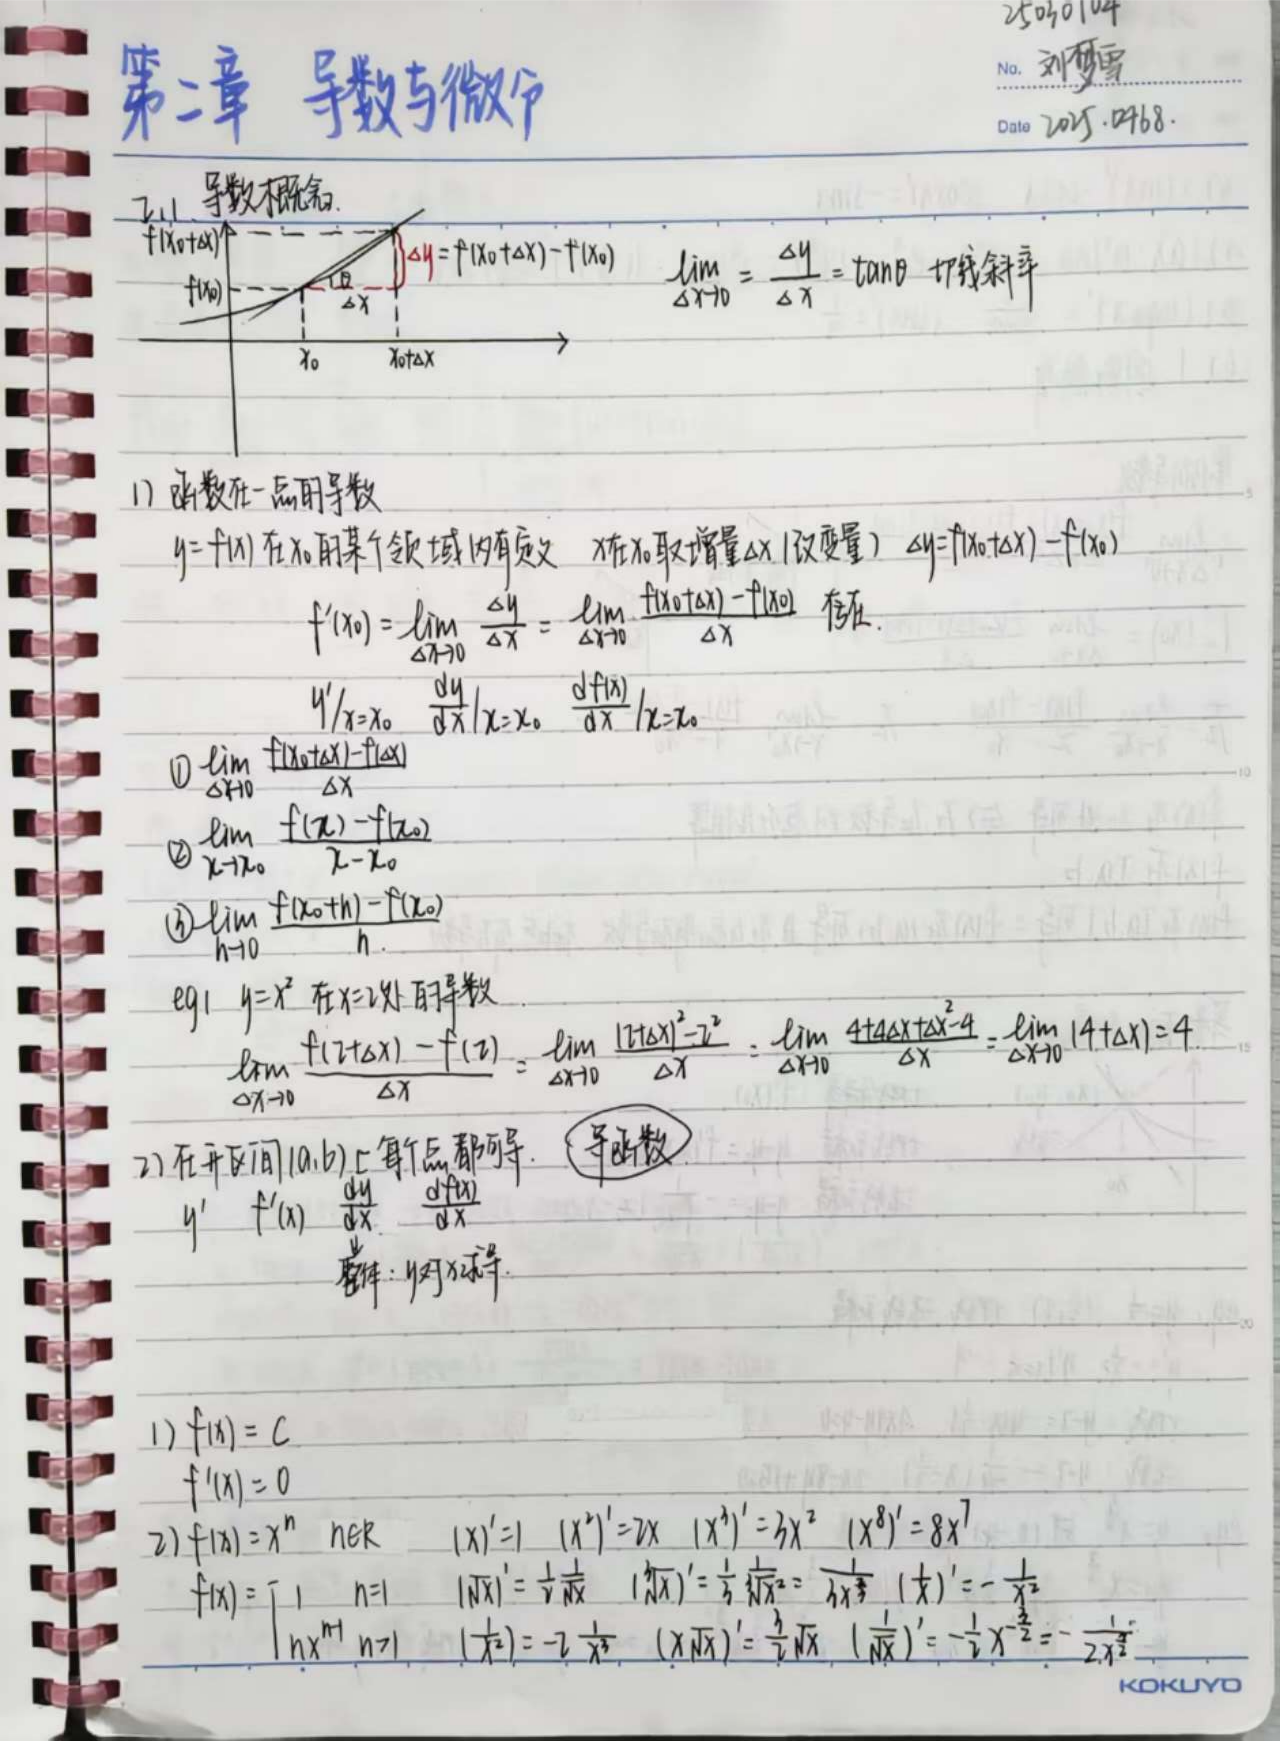 25030104
No. 刘梦雪
Date 2025.0968.
第二章 导数与微分
2.1 导数概念.
f(x₀+Δx)
Δy=f(x₀+Δx)-f(x₀)
f(x₀)
θ
Δx
x₀ x₀+Δx
lim Δx→0 = Δy/Δx = tanθ 切线斜率
1) 函数在一点的导数
y=f(x) 在x₀的某个领域内有定义 x在x₀取增量Δx(改变量) Δy=f(x₀+Δx)-f(x₀)
f'(x₀)= lim Δx→0 Δy/Δx = lim Δx→0 (f(x₀+Δx)-f(x₀))/Δx 存在.
y'/x=x₀ dy/dx /x=x₀ df(x)/dx /x=x₀
① lim Δx→0 (f(x₀+Δx)-f(Δx))/Δx
② lim x→x₀ (f(x)-f(x₀))/(x-x₀)
③ lim h→0 (f(x₀+h)-f(x₀))/h.
eg1 y=x² 在x=2处的导数
lim Δx→0 (f(2+Δx)-f(2))/Δx = lim Δx→0 ((2+Δx)²-2²)/Δx = lim Δx→0 (4+4Δx+Δx²-4)/Δx = lim Δx→0 (4+Δx)=4
2) 在开区间(a,b)上每个点都可导. 导函数
y' f'(x) dy/dx df(x)/dx
整体: y对x求导.
1) f(x)=C
f'(x)=0
2) f(x)=xⁿ n∈R (x)'=1 (x²)'=2x (x³)'=3x² (x⁸)'=8x⁷
f(x)= 1 n=1 (√x)'=1/2 1/√x (∛x)'=1/3 1/∛x² = (1/x)'=-1/x²
nxⁿ⁻¹ n>1 (1/x²)=-2 1/x³ (x√x)'=3/2 √x (1/√x)'=-1/2 x^(-3/2) = -1/(2x^(3/2))
KOKUYO